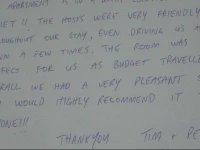 APARTMENT IS IN A
IET !! THE HOSTS WERE VERY FRIENDLY
OUGHOUT OUR STAY, EVEN DRIVING US
N A FEW TIMES. THE ROOM WAS
FECT FOR US AS BUDGET TRAVELLE
RALL WE HAD A VERY PLEASANT
WOULD HIGHLY RECOMMEND IT
YONE!!
THANKYOU TIM + PE